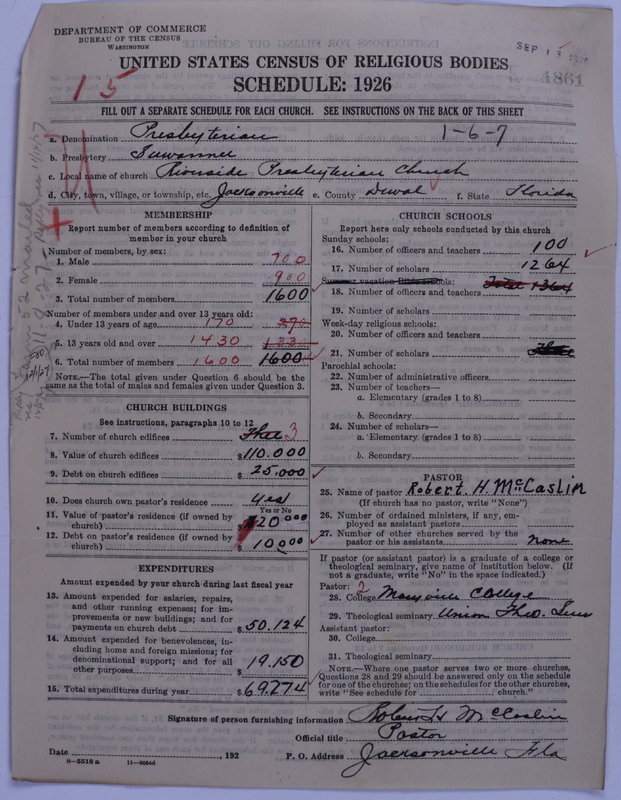 DEPARTMENT OF COMMERCE
BUREAU OF THE CENSUS
WASHINGTON
SEP 13
1861
UNITED STATES CENSUS OF RELIGIOUS BODIES
SCHEDULE: 1926
15
FILL OUT A SEPARATE SCHEDULE FOR EACH CHURCH. SEE INSTRUCTIONS ON THE BACK OF THIS SHEET
1-6-7
a. Denomination Presbyterian
b. Presbytery Suwannee
c. Local name of church Riverside Presbyterian Church
d. City, town, village, or township, etc. Jacksonville e. County Duval f. State Florida
MEMBERSHIP
Report number of members according to definition of
member in your church
Number of members, by sex:
1. Male 700
2. Female 900
3. Total number of members 1600
Number of members under and over 13 years old:
4. Under 13 years of age 170 270
5. 13 years old and over 1430 133
6. Total number of members 1600 1600
NOTE.—The total given under Question 6 should be the
same as the total of males and females given under Question 3.
CHURCH BUILDINGS
See instructions, paragraphs 10 to 12
7. Number of church edifices Three 3
8. Value of church edifices $110.000
9. Debt on church edifices $25.000
10. Does church own pastor's residence yes
Yes or No
11. Value of pastor's residence (if owned by
church) $20000
12. Debt on pastor's residence (if owned by
church) $10000
EXPENDITURES
Amount expended by your church during last fiscal year
13. Amount expended for salaries, repairs,
and other running expenses; for im-
provements or new buildings; and for
payments on church debt $50.124
14. Amount expended for benevolences, in-
cluding home and foreign missions; for
denominational support; and for all
other purposes $19.150
15. Total expenditures during year $69.274
CHURCH SCHOOLS
Report here only schools conducted by this church
Sunday schools:
16. Number of officers and teachers 100
17. Number of scholars 1264
Summer vacation Bible schools: Total 1364
18. Number of officers and teachers
19. Number of scholars
Week-day religious schools:
20. Number of officers and teachers
21. Number of scholars
Parochial schools:
22. Number of administrative officers
23. Number of teachers—
a. Elementary (grades 1 to 8)
b. Secondary
24. Number of scholars—
a. Elementary (grades 1 to 8)
b. Secondary
PASTOR
25. Name of pastor Robert H. McCaslin
(If church has no pastor, write "None")
26. Number of ordained ministers, if any, em-
ployed as assistant pastors
27. Number of other churches served by the
pastor or his assistants None
If pastor (or assistant pastor) is a graduate of a college or
theological seminary, give name of institution below. (If
not a graduate, write "No" in the space indicated.)
Pastor: 2
28. College Maryville College
29. Theological seminary Union Theo. Sem
Assistant pastor:
30. College
31. Theological seminary
NOTE.—Where one pastor serves two or more churches,
Questions 28 and 29 should be answered only on the schedule
for one of the churches; on the schedules for the other churches,
write "See schedule for church."
Signature of person furnishing information Robert H McCaslin
Official title Pastor
Date , 192 P. O. Address Jacksonville Fla
8—5518 a